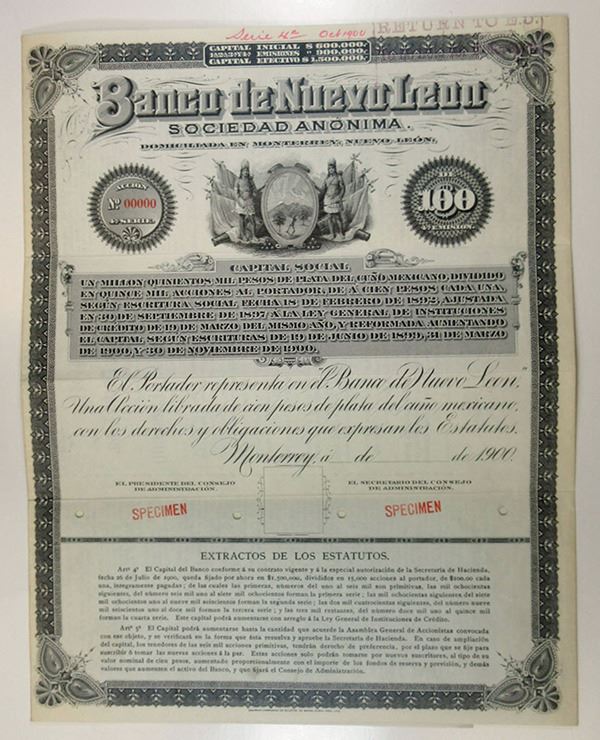 Serie 4a Oct 1900
RETURN TO E.D.
CAPITAL INICIAL $ 600.000.
EMISIONES " 900,000.
CAPITAL EFECTIVO $ 1.500.000.
Banco de Nuevo Leon
SOCIEDAD ANÓNIMA.
DOMICILIADA EN MONTERREY, NUEVO LEÓN.
ACCION
No 00000
4a SERIE.
DE
$100
4a EMISION.
CAPITAL SOCIAL
UN MILLON QUINIENTOS MIL PESOS DE PLATA DEL CUÑO MEXICANO, DIVIDIDO
EN QUINCE MIL ACCIONES AL PORTADOR, DE Á CIEN PESOS CADA UNA,
SEGÚN ESCRITURA SOCIAL FECHA 18 DE FEBRERO DE 1892, AJUSTADA
EN 30 DE SEPTIEMBRE DE 1897 Á LA LEY GENERAL DE INSTITUCIONES
DE CRÉDITO DE 19 DE MARZO DEL MISMO AÑO, Y REFORMADA AUMENTANDO
EL CAPITAL SEGÚN ESCRITURAS DE 19 DE JUNIO DE 1899, 31 DE MARZO
DE 1900, Y 30 DE NOVIEMBRE DE 1900.
El Portador representa en el "Banco de Nuevo Leon,"
Una Acción librada de cien pesos de plata del cuño mexicano,
con los derechos y obligaciones que expresan los Estatutos.
Monterrey, á de de 1900.
EL PRESIDENTE DEL CONSEJO
DE ADMINISTRACIÓN.
EL SECRETARIO DEL CONSEJO
DE ADMINISTRACIÓN.
SPECIMEN
SPECIMEN
EXTRACTOS DE LOS ESTATUTOS.
Arto 4o El Capital del Banco conforme á su contrato vigente y á la especial autorización de la Secretaría de Hacienda,
fecha 26 de Julio de 1900, queda fijado por ahora en $1,500,000, divididos en 15,000 acciones al portador, de $100.00 cada
una, integramente pagadas; de las cuales las primeras, números del uno al seis mil son primitivas, las mil ochocientas
siguientes, del número seis mil uno al siete mil ochocientos forman la primera serie; las mil ochocientas siguientes del siete
mil ochocientos uno al nueve mil seiscientos forman la segunda serie; las dos mil cuatrocientas siguientes, del número nueve
mil seiscientos uno al doce mil forman la tercera serie; y las tres mil restantes, del número doce mil uno al quince mil
forman la cuarta serie. Este capital podrá aumentarse con arreglo á la Ley General de Instituciones de Crédito.
Arto 5o El Capital podrá aumentarse hasta la cantidad que acuerde la Asamblea General de Accionistas convocada
con ese objeto, y se verificará en la forma que ésta resuelva y apruebe la Secretaría de Hacienda. En caso de ampliación
del capital, los tenedores de las seis mil acciones primitivas, tendrán derecho de preferencia, por el plazo que se fije para
suscribir ó tomar las nuevas acciones á la par. Estas acciones solo podrán tomarse por nuevos suscritores, al tipo de su
valor nominal de cien pesos, aumentado proporcionalmente con el importe de los fondos de reserva y previsión, y demás
valores que aumenten el activo del Banco, y que fijará el Consejo de Administración.